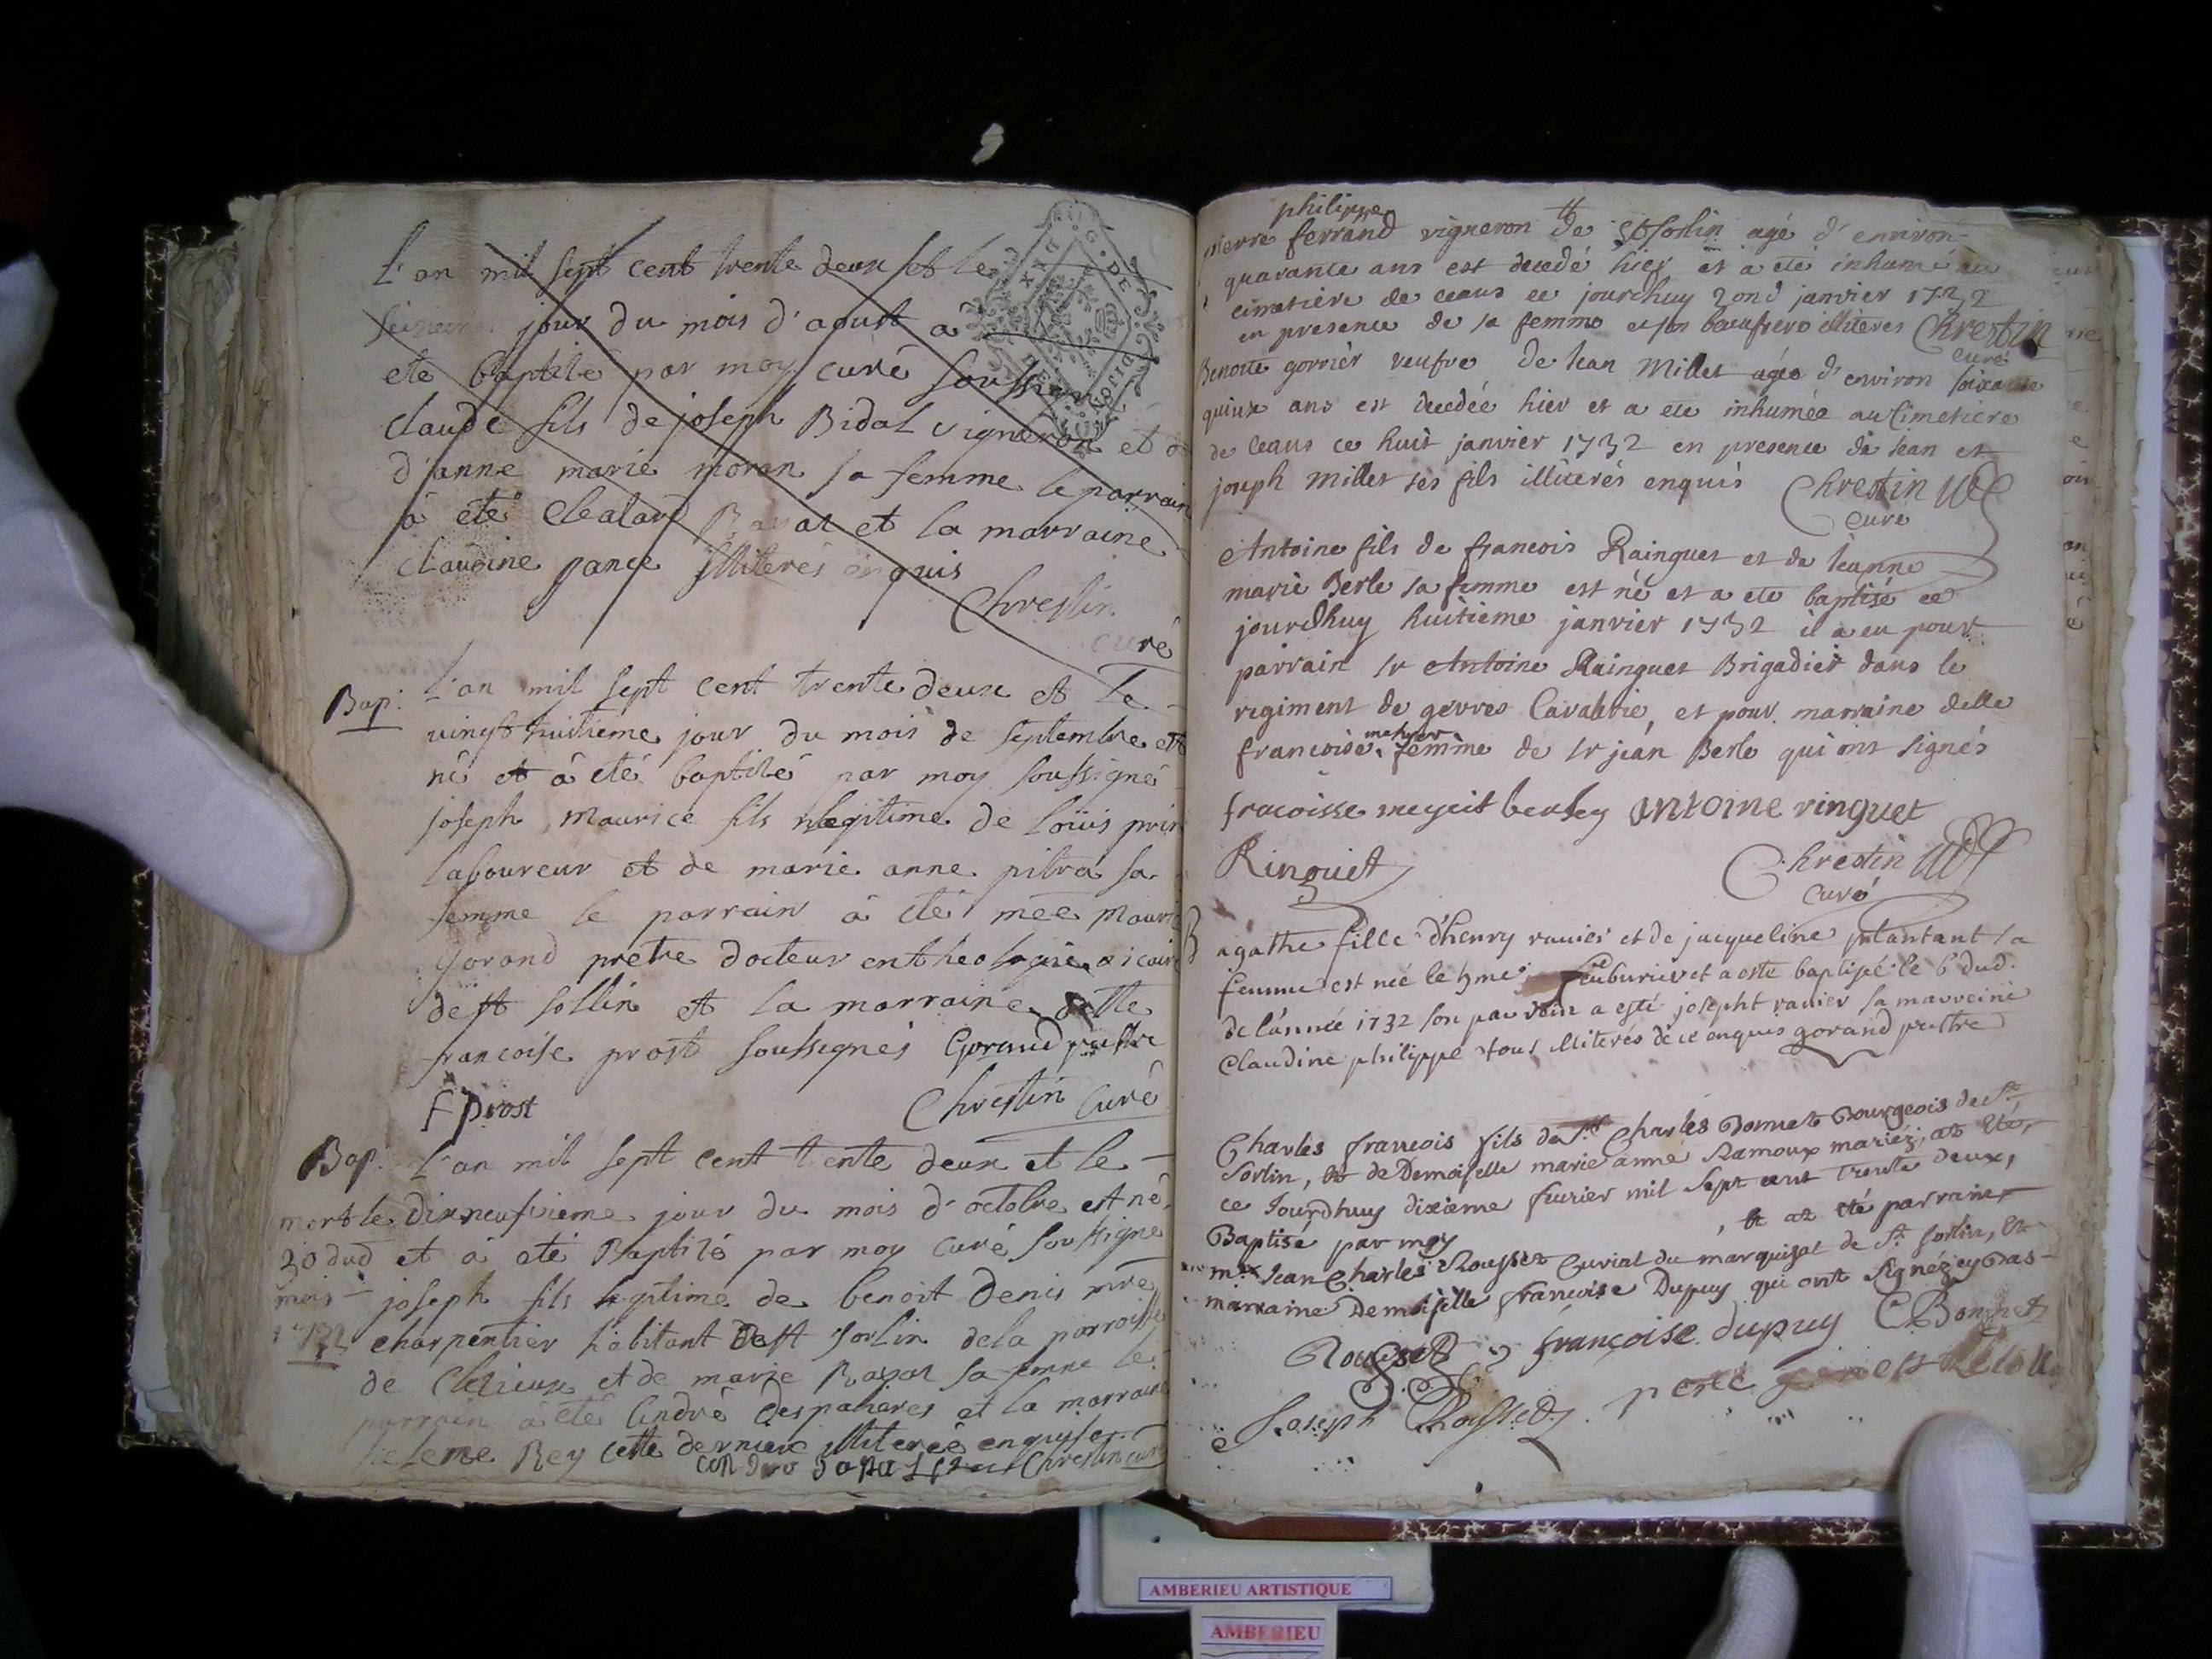 L'an mil sept cent trente deux et le
seizieme jour du mois d'aoust a
eté baptisé par moy curé soussigné
claude fils de joseph Bidal vigneron et
d'anne marie moran sa femme le parrain
a été et la marraine
claudine pance illiterés enquis
Chrestin
curé
Bap: L'an mil sept cent trente deux et le
vingt huitieme jour du mois de septembre est
né et a eté baptisé par moy soussigné
joseph maurice fils legitime de loüis prin
laboureur et de marie anne pitra sa
femme le parrain a eté mre mauri
gorand pretre docteur en theologie vicaire
de st sorlin et la marraine delle
francoise prost soussignés Gorand prestre
f prost Chrestin curé
Bap: L'an mil sept cent trente deux et le
dixneufvieme jour du mois d'octobre est né
et a eté Baptisé par moy curé soussigné
joseph fils legitime de benoit denis mre
charpentier habitant de st sorlin de la parroisse
de et de marie Ravat sa femme le
parrain a eté André et la marraine
Rey cette derniere illiterée enquise
Chrestin curé
mort le
30 dud
mois
1732
philippe
pierre ferrand vigneron de St Sorlin agé d'environ
quarante ans est decedé hier et a eté inhumé au
cimetiere de ceans ce jourdhuy 2ond janvier 1732
en presence de sa femme et son beaufrere illiteres Chrestin
curé
Benoite gorrier veufve de Jean Millet agée d'environ soixante
quinze ans est decedée hier et a eté inhumée au Cimetiere
de ceans ce huit janvier 1732 en presence de Jean et
joseph Millet ses fils illiterés enquis Chrestin
curé
Antoine fils de francois Rainguet et de Jeanne
marie Berle sa femme est né et a eté baptisé ce
jourdhuy huitieme janvier 1732 il a eu pour
parrain sr Antoine Rainguet Brigadier dans le
regiment de gevres Cavalerie, et pour marraine delle
francoise femme de sr jean Berle qui ont signés
antoine ringuet
Ringuet Chrestin
curé
B agathe fille d'henry ravier et de jacqueline sa
femme est neé le 5me feuburier et a esté baptisé le 6 dud.
de l'année 1732 son parrein a esté josepht ravier sa marreine
Claudine philippe tous illiterés de ce enquis gorand prestre
Charles francois fils de Sr Charles Bonnet Bourgeois de St
Sorlin, et de Demoiselle marie anne Ramoux mariéz, at eté
ce Jourdhuy dixieme feurier mil sept cent trente deux,
Baptisé par moy , et at eté parrain
mre Jean Charles Rousset Curial du marquisat de St Sorlin, et
marraine Demoiselle francoise Dupuy qui ont signéz cy bas
Rousset françoise dupuy CBonnet
Joseph Rousset
AMBERIEU ARTISTIQUE
AMBERIEU